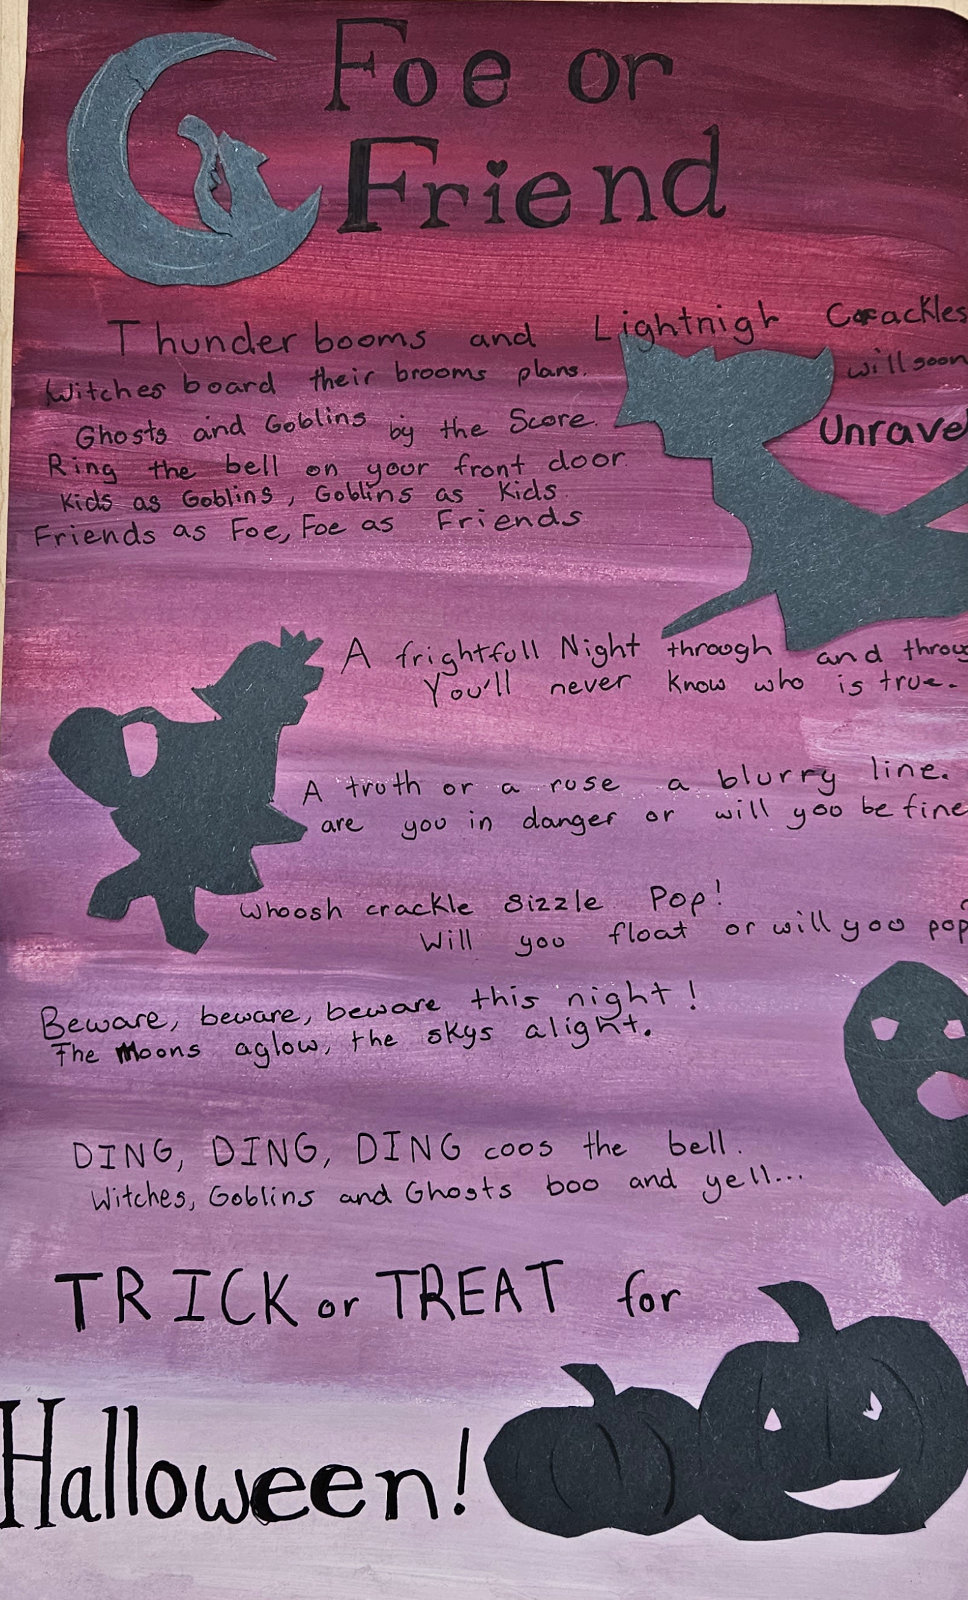 Foe or
Friend
Thunder booms and Lightnigh Crackles
Witches board their brooms plans. will soon
Unravel
Ghosts and Goblins by the Score.
Ring the bell on your front door.
Kids as Goblins, Goblins as Kids.
Friends as Foe, Foe as Friends
A frightfull Night through and throug
You'll never know who is true.
A truth or a ruse a blurry line.
are you in danger or will you be fine
Whoosh crackle Sizzle Pop!
Will you float or will you pop
Beware, beware, beware this night!
The Moons aglow, the skys alight.
DING, DING, DING coos the bell.
Witches, Goblins and Ghosts boo and yell...
TRICK or TREAT for
Halloween!